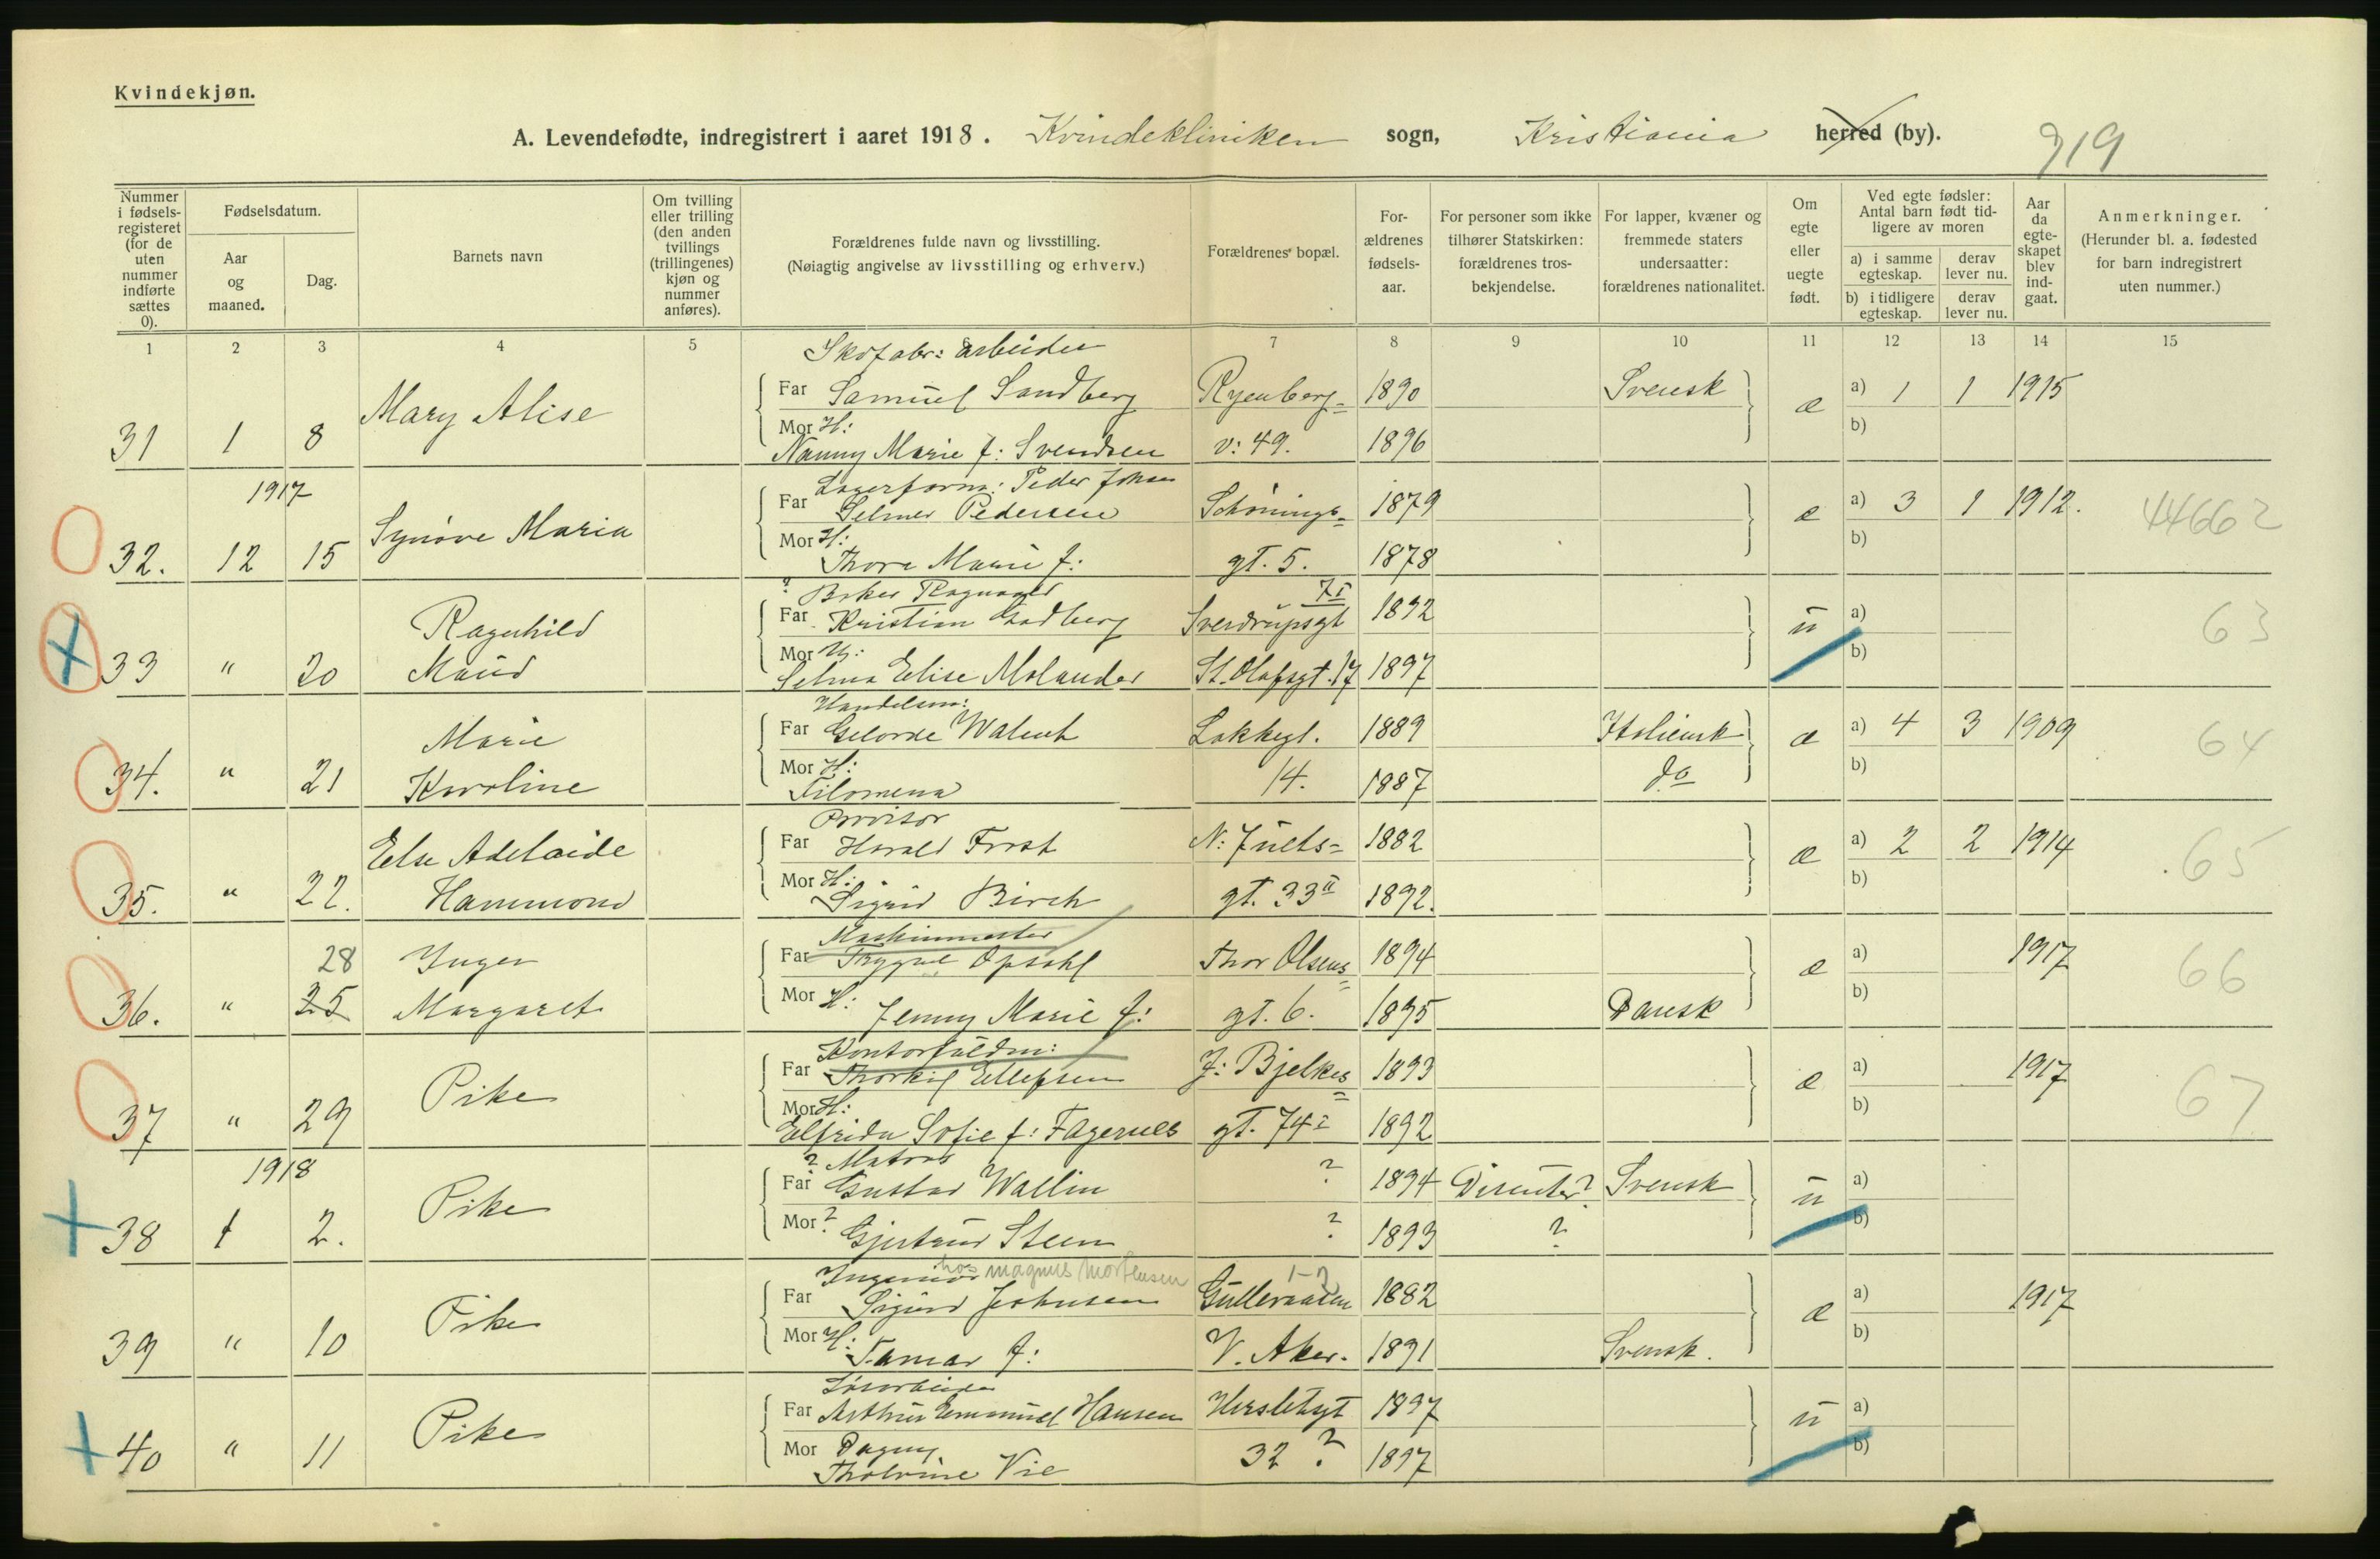 Kvindekjøn.
A. Levendefødte, indregistrert i aaret 1918. Kvindekliniken sogn, Kristiania herred (by).
919
Nummer i fødsels-registeret (for de uten nummer indførte sættes 0).
Fødselsdatum.
Aar og maaned.
Dag.
Barnets navn
Om tvilling eller trilling (den anden tvillings (trillingenes) kjøn og nummer anføres).
Forældrenes fulde navn og livsstilling.
(Nøiagtig angivelse av livsstilling og erhverv.)
Forældrenes bopæl.
For-ældrenes fødsels-aar.
For personer som ikke tilhører Statskirken: forældrenes tros-bekjendelse.
For lapper, kvæner og fremmede staters undersaatter: forældrenes nationalitet.
Om egte eller uegte født.
Ved egte fødsler: Antal barn født tid-ligere av moren
a) i samme egteskap. derav lever nu.
b) i tidligere egteskap. derav lever nu.
Aar da egte-skapet blev ind-gaat.
Anmerkninger.
(Herunder bl. a. fødested for barn indregistrert uten nummer.)
1 2 3 4 5 7 8 9 10 11 12 13 14 15
Skofabr: arbeider
31 1 8 Mary Alise Far Samuel Sandberg Ryenberg= 1890 Svensk æ a) 1 1 1915
Mor H: Nanny Marie f: Svendsen v: 49. 1896 b)
1917
Lagerform: Peder Johan
32. 12 15 Synøve Maria Far Selmer Pedersen Schønings= 1879 æ a) 3 1 1912. 44662
Mor H: Thora Marie f: gt. 5. 1878 b)
? Baker Ragnvald
33 " 20 Ragnhild Maud Far Kristian Gadberg Sverdrupsgt 7 I 1892 u a) 63
Mor U: Selma Elise Molander St. Olafsgt. 17 1897 b)
Handelsm:
34. " 21 Marie Karoline Far Gelorde Walent Lakkegt. 1889 Italiensk æ a) 4 3 1909 64
Mor H: Filomena 14. 1887 do b)
Provisor
35. " 22. Else Adelaide Hammond Far Harald Frost N: Juels= 1882 æ a) 2 2 1914 65
Mor H: Sigrid Birch gt. 33 II 1892. b)
Maskinmester
36. " 28 25 Inger Margaret Far Trygve Opsahl Thor Olsens= 1894 æ a) 1917 66
Mor H: Jenny Marie f: gt. 6. 1895 Dansk b)
Kontorfuldm:
37 " 29 Pike Far Thorkil Ellefsen J: Bjelkes= 1893 æ a) 1917 67
Mor H: Elfrida Sofie f: Fagernes gt. 74 I 1892 b)
1918
? Matros
38 1 2. Pike Far Gustav Wallin ? 1894 Disenter? Svensk u a)
Mor ? Gjertrud Steen ? 1893 ? b)
Ingeniør hos Magnus Mortensen
39 " 10 Pike Far Sigurd Johnsen Gulleraasen 1882 æ a) 1917
Mor H: Tamar f: V. Aker. 1891 Svensk. b)
Løsarbeider
40 " 11 Pike Far Arthur Emanuel Hansen Herslebsgt 1897 u a)
Mor Dagny Tholvine Vie 32 ? 1897 b)